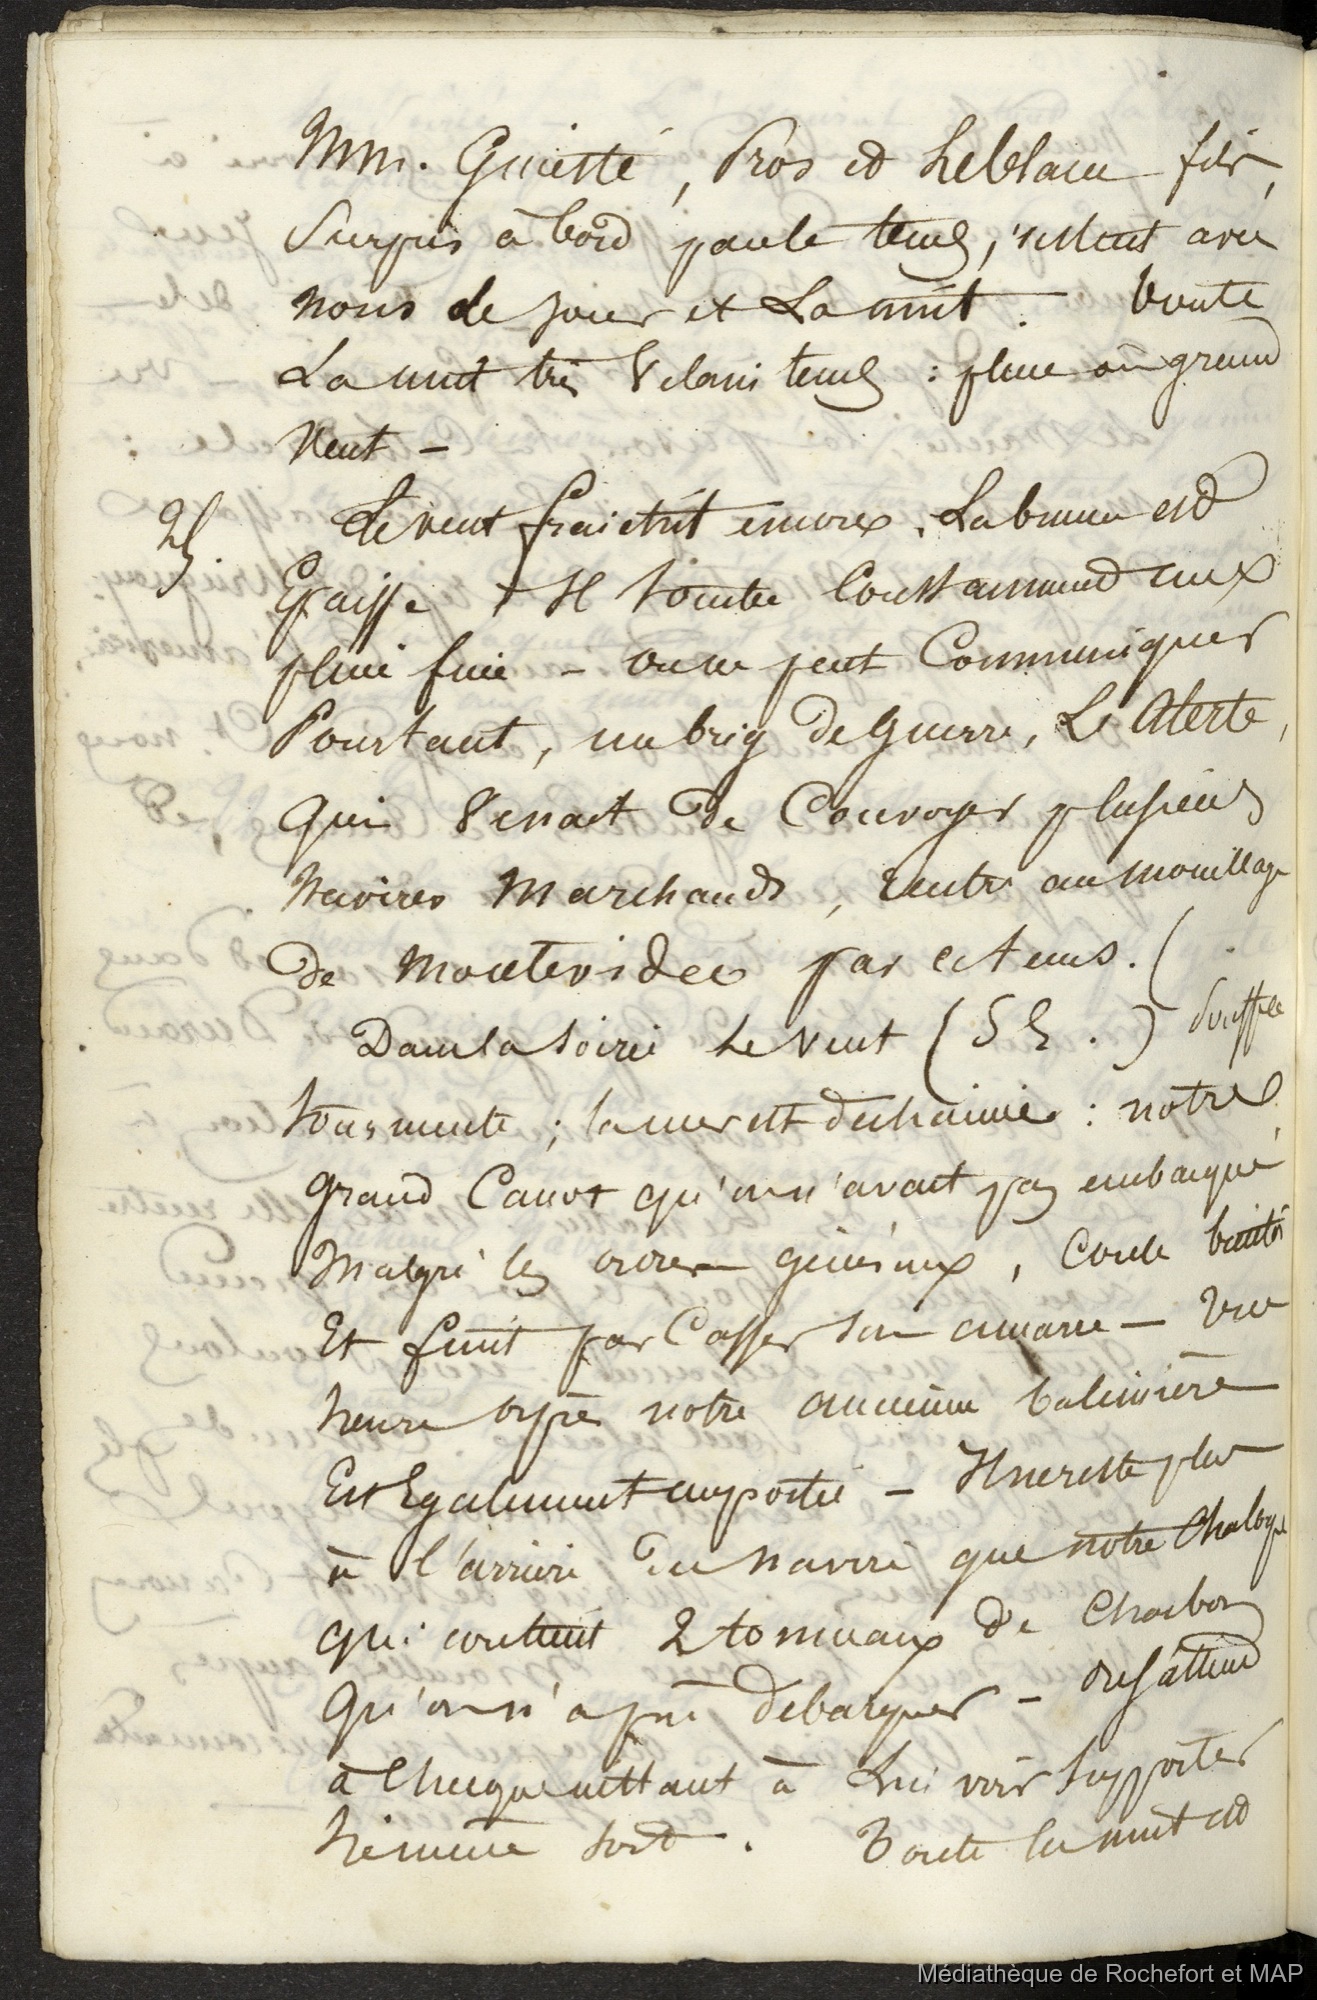 Mm. Guiesté, Pros et Leblanc fils,
Surpris à bord par le tems, restent avec
nous le jour et La nuit. Toute
La nuit très Vilain tems : pluie et grand
Vent —
25. Le vent fraichit encore. La brume est
Epaisse. Il tombe Constamment une
pluie fine — on ne peut Communiquer
Pourtant, un brig de guerre, L'Alerte,
Qui Venait de Convoyer plusieurs
Navires Marchands, rentre au mouillage
de Montevideo par ce tems.
Dans la soirée Le Vent (S E.) souffle
tourmente ; la mer est dechainée : notre
grand Canot qu'on n'avait pas embarqué
Malgré les ordres généraux, Coule bientôt
Et finit par Casser son amarre — Une
heure après notre ancienne baleinière
Est Egalement emportée — Il ne reste plus
à l'arrière du navire que notre Chaloupe
qui contient 2 tonneaux de Charbon
Qu'on n'a pu debarquer — on s'attend
à Chaque instant à Lui voir supporter
le même sort. Toute la nuit est
Médiathèque de Rochefort et MAP